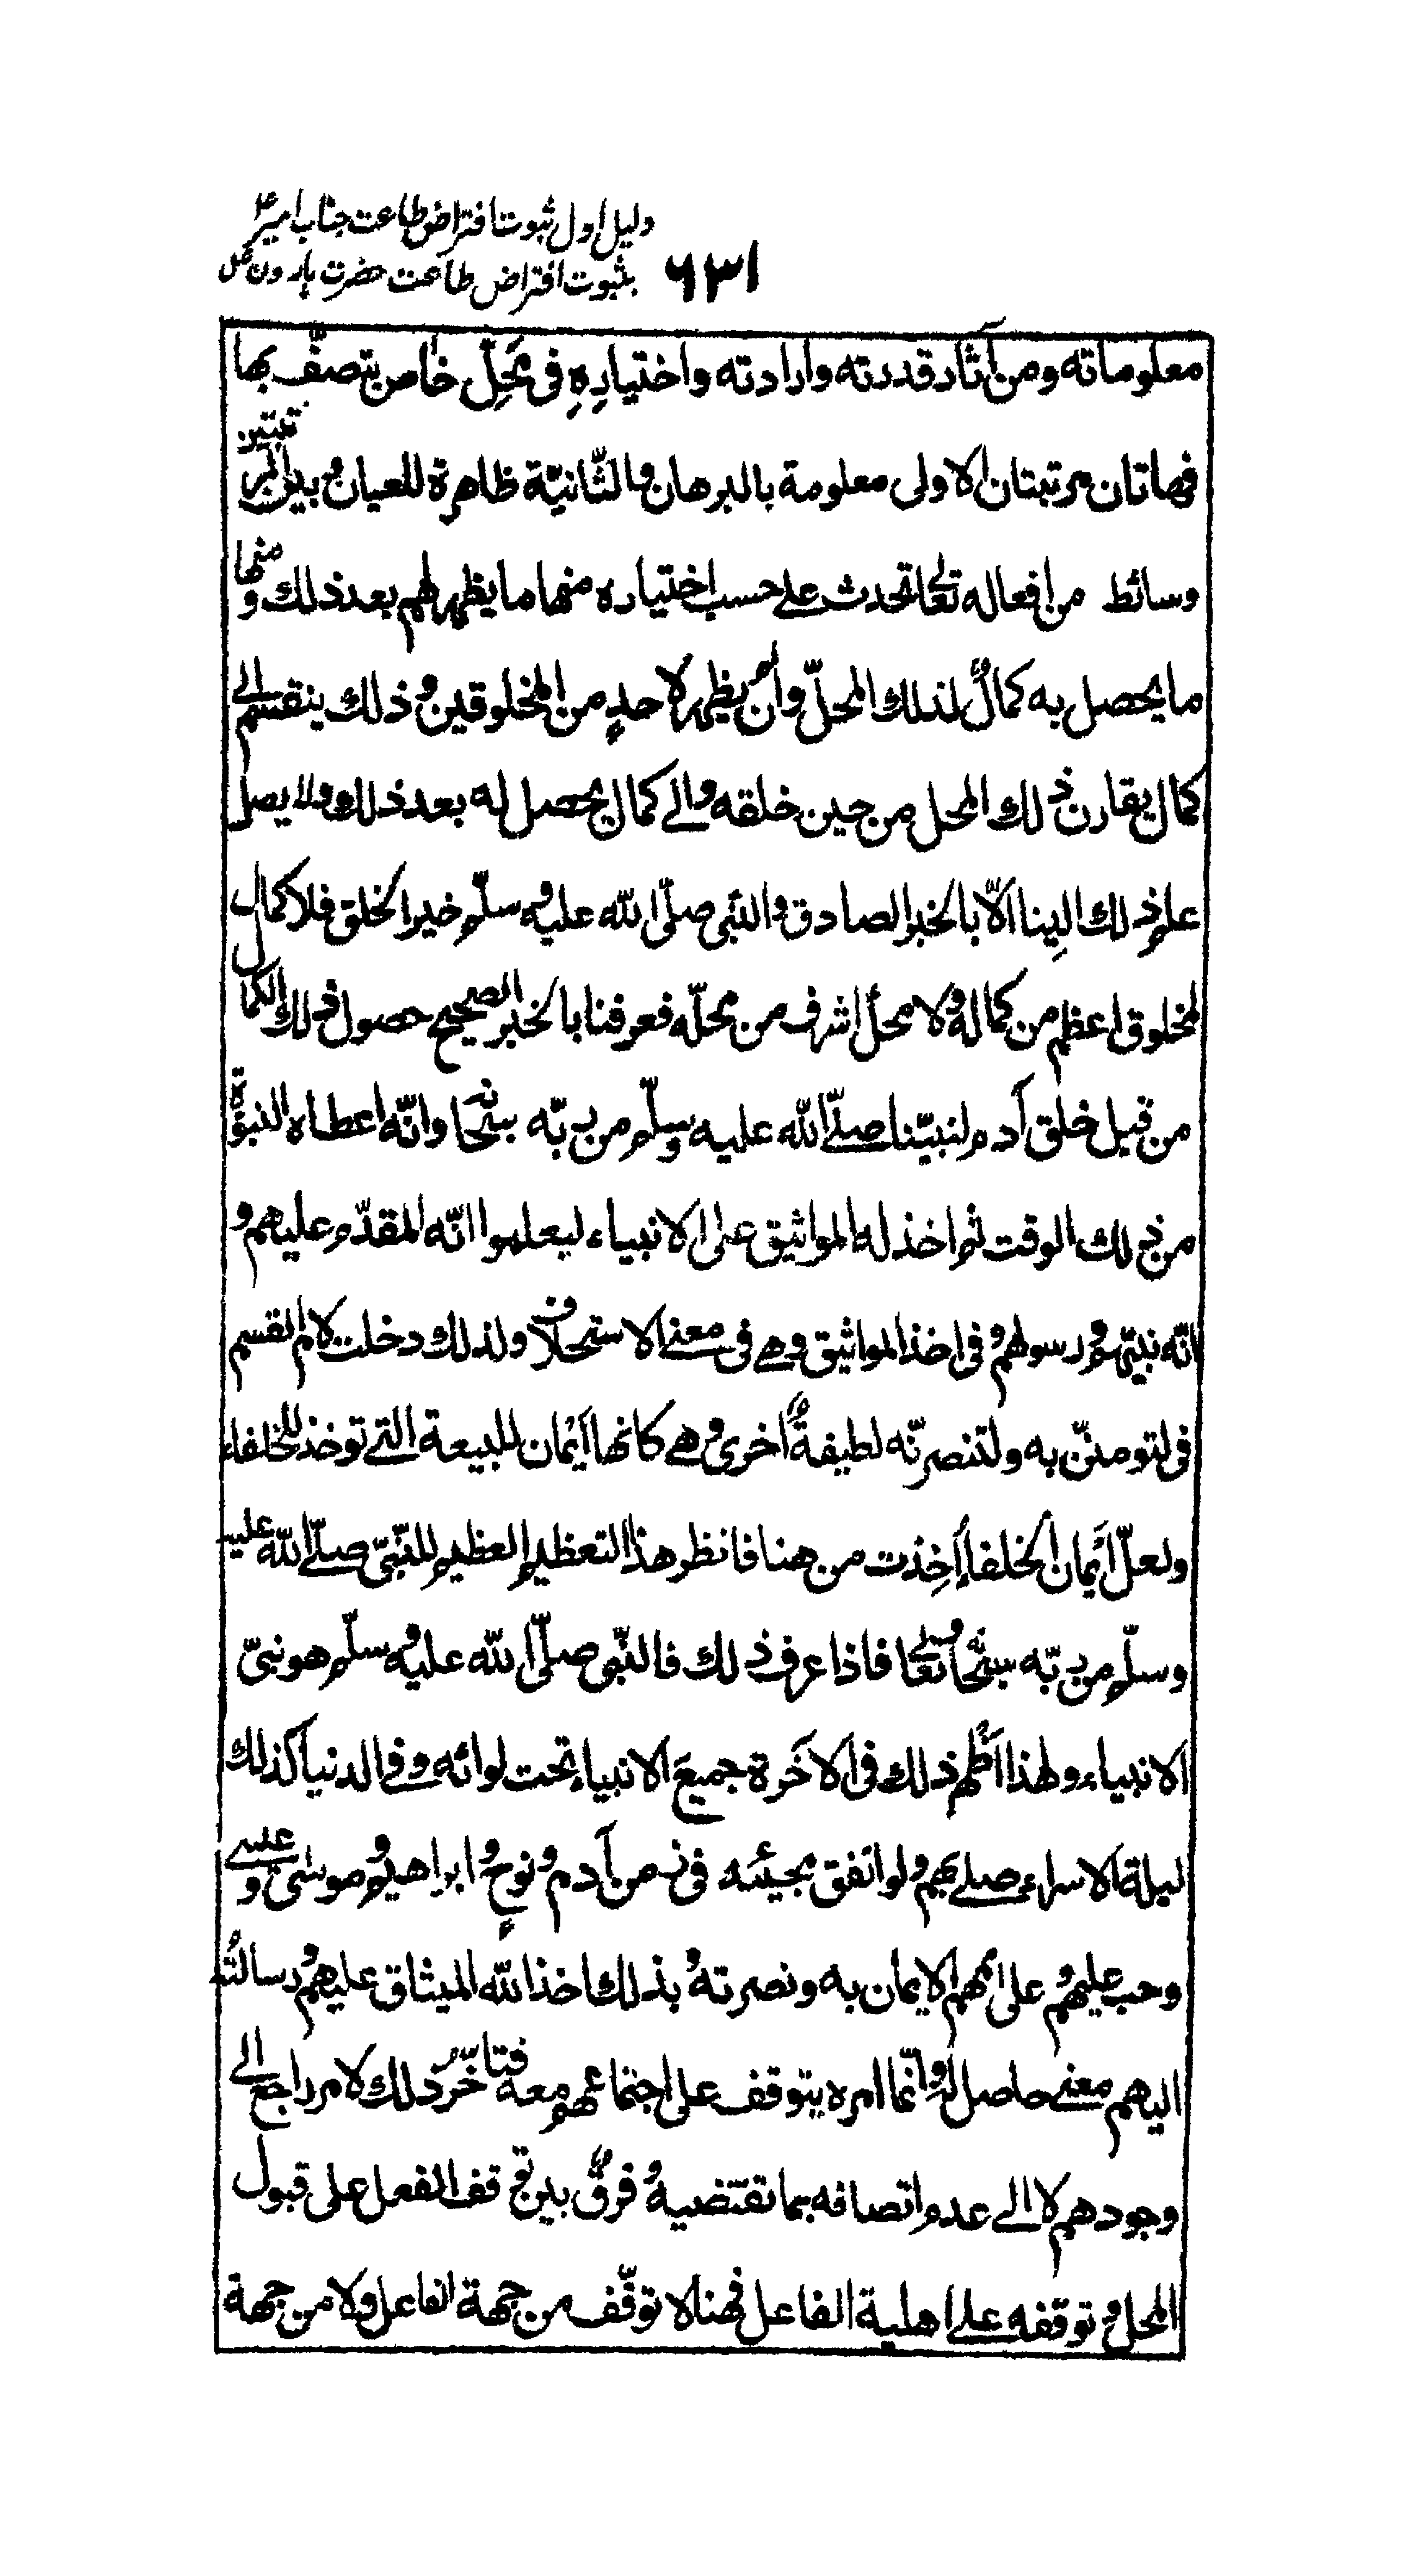 دلیل اول ثبوت افتراض طاعت جناب امیرؑ
بثبوت افتراض طاعت حضرت ہارون
۶۳۱
معلوماته ومن آثار قدرته وارادته واختيارِهِ فى مَحِلّ خاص يتصفّ بها
فهاتان مرتبتان الاولى معلومة بالبرهان والثّانيّة ظاهرة للعيان وبين المرتبتين
وسائط من افعاله تعالىٰ تحدث على حسب اختياره منها ما يظهر لهم بعد ذلك ومنها
ما يحصل به كمالٌ لذلك المحلّ وان لم يظهر لاحدٍ من المخلوقين وذلك ينقسم الى
كمال يقارن ذلك المحل من حين خلقه والى كمال يحصل له بعد ذلك ولا يصل
علم ذلك اليِنا الّا بالخبر الصادق والنّبى صلّى الله عليه وسلّم خير الخلق فلا كمال
لمخلوق اعظم من كماله ولا محلّ اشرف من محلّه فعرفنا بالخبر الصحيح حصول ذلك الكمال
من قبل خلق آدم لنبيّنا صلّى الله عليه وسلّم من ربّه سبحٰنه وانّه اعطاه النبوّة
من ذلك الوقت ثم اخذ له المواثيق على الانبياء ليعلموا انّه المقدّم عليهم و
انّه نبيّهم ورسولهم وفى اخذ المواثيق وهى فى معنى الاستحلاف ولذلك دخلت لام القسم
فى لتومننّ به ولتنصرنّه لطيفةٌ اخرى وهى كانها اَيْمان للبيعة التى توخذ للخلفاء
ولعلّ اَيْمان الخلفاء اُخِذت من هنا فانظر هذا التعظيم العظيم للنّبىّ صلّى الله عليه
وسلّم من ربّه سبحٰنه وتعالىٰ فاذا عرف ذلك فالنّبى صلّى الله عليه وسلّم هو نبىّ
الانبياء ولهذا اظهر ذلك فى الاٰخرة جميعَ الانبياء تحت لوائه وفى الدنيا كذلك
ليلة الاسراء صلى بهم ولو اتفق مجيئه فى زمن آدم ونوحٍ وابراهيم وموسىٰ وعيسى
وجب عليهم وعلى اممهم الايمان به ونصرته وبذلك اخذ الله الميثاق عليهم ورسالتُه
اليهم معنى حاصل له وانّما امره يتوقف على اجتماعهم معه فتاخّر ذلك لامر راجع الى
وجودهم لا الى عدم اتصافه بما تقتضيه وفرقٌ بين توقف الفعل على قبول
المحل وتوقفه على اهلية الفاعل فهنا لا توقّف من جهة الفاعل ولا من جهة